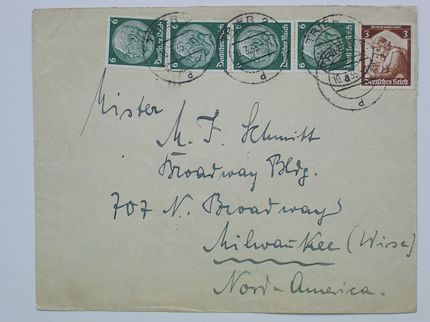 6 6 6 6 3
Deutsches Reich Deutsches Reich Deutsches Reich Deutsches Reich Deutsches Reich
TRIER 2
d d d d
Mister
M. F. Schmitt
Broadway Bldg.
707 N. Broadway
Milwaukee (Wisc)
Nord-America.